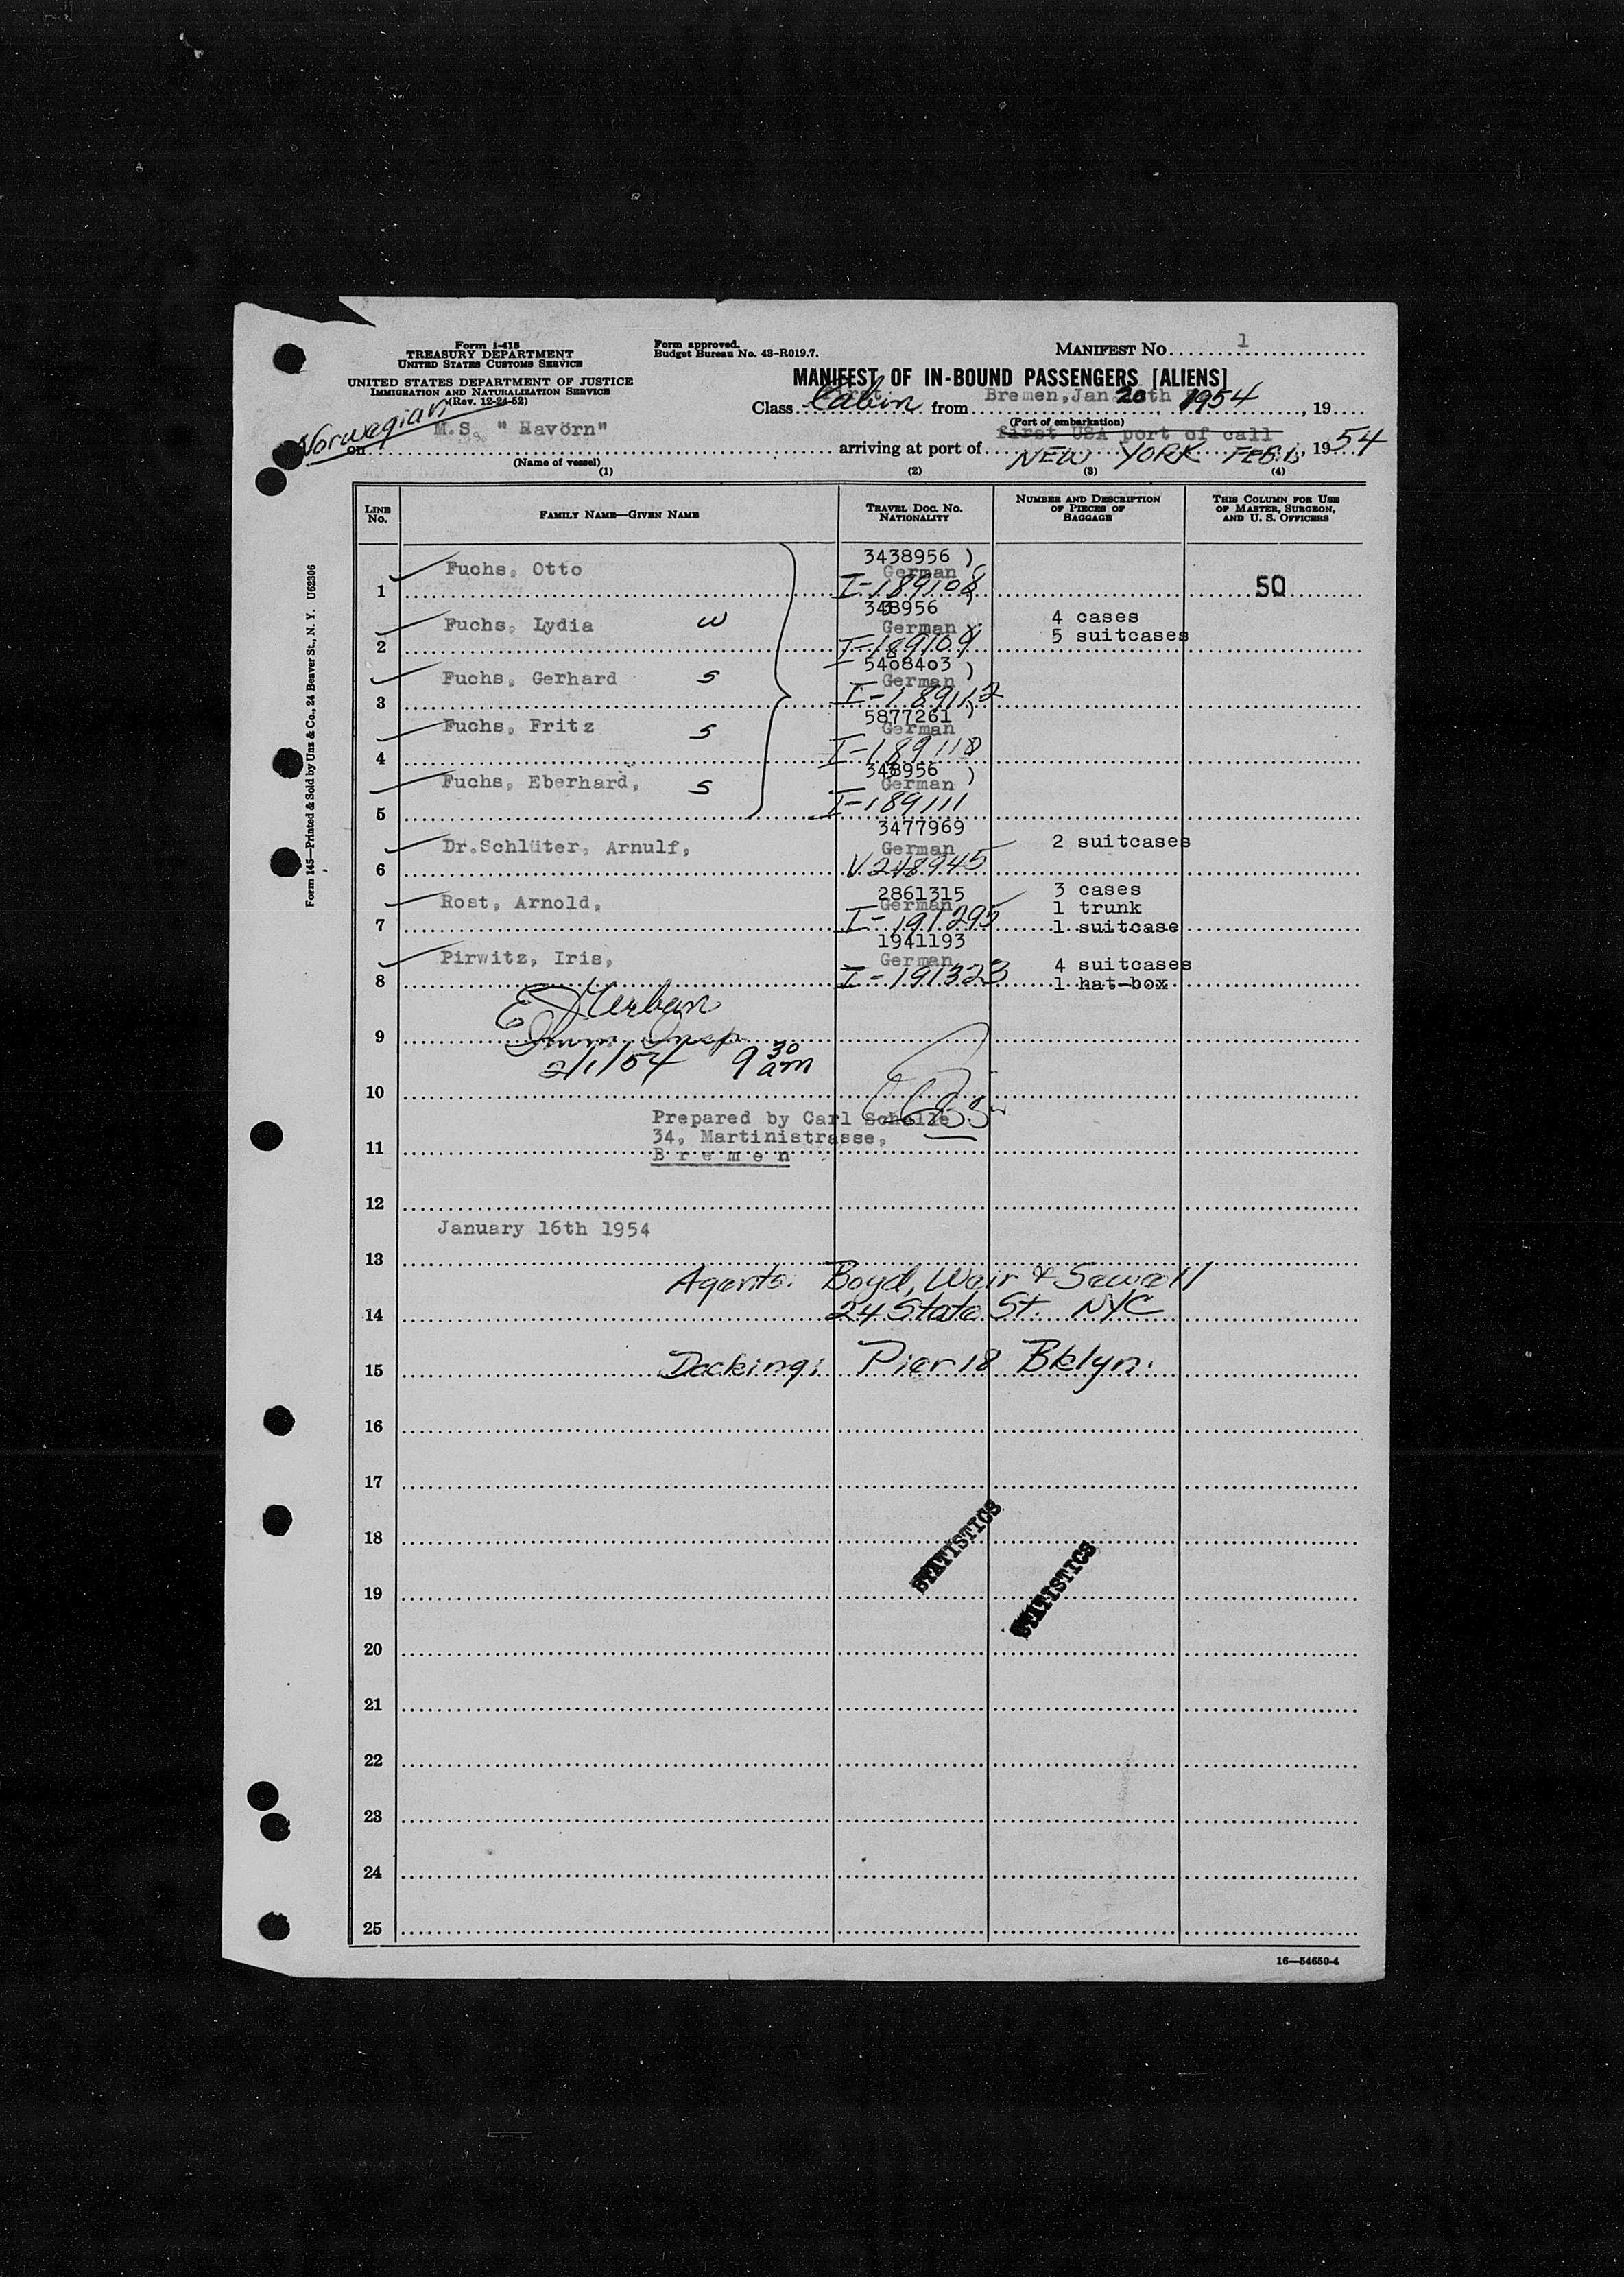 Form I-418
TREASURY DEPARTMENT
UNITED STATES CUSTOMS SERVICE
UNITED STATES DEPARTMENT OF JUSTICE
IMMIGRATION AND NATURALIZATION SERVICE
(Rev. 12-24-52)
Form approved.
Budget Bureau No. 43-R019.7.
MANIFEST No. 1
MANIFEST OF IN-BOUND PASSENGERS [ALIENS]
Class Cabin from Bremen, Jan 20th 1954, 19
(Port of embarkation)
Norwegian
on M.S. "Havörn" arriving at port of first USA port of call
NEW YORK FEB. 1, 1954
(Name of vessel)
(1) (2) (3) (4)
LINE No.
FAMILY NAME—GIVEN NAME
TRAVEL DOC. NO. NATIONALITY
NUMBER AND DESCRIPTION OF PIECES OF BAGGAGE
THIS COLUMN FOR USE OF MASTER, SURGEON, AND U. S. OFFICERS
1 Fuchs, Otto 3438956 ) German I-189108 50
2 Fuchs, Lydia W German I-189109 4 cases 5 suitcases
3 Fuchs, Gerhard S 5408403 ) German I-189112
4 Fuchs, Fritz S 5877261 ) German I-189110
5 Fuchs, Eberhard, S 348956 ) German I-189111
6 Dr.Schlüter, Arnulf, 3477969 German V.248945 2 suitcases
7 Rost, Arnold, 2861315 German I-191295 3 cases 1 trunk 1 suitcase
8 Pirwitz, Iris, 1941193 German I-191323 4 suitcases 1 hat-box
Urban
9 Imm. Insp.
2/1/54 9 30 am
10
Prepared by Carl Scholle
34, Martinistrasse,
11 Bremen
12
January 16th 1954
13
Agents: Boyd, Weir & Sewell
14 24 State St. NYC
15 Docking: Pier 18 Bklyn.
16
17
18 STATISTICS
19 STATISTICS
20
21
22
23
24
25
16—54650-4
Form 145—Printed & Sold by Unz & Co., 24 Beaver St., N. Y. U62306